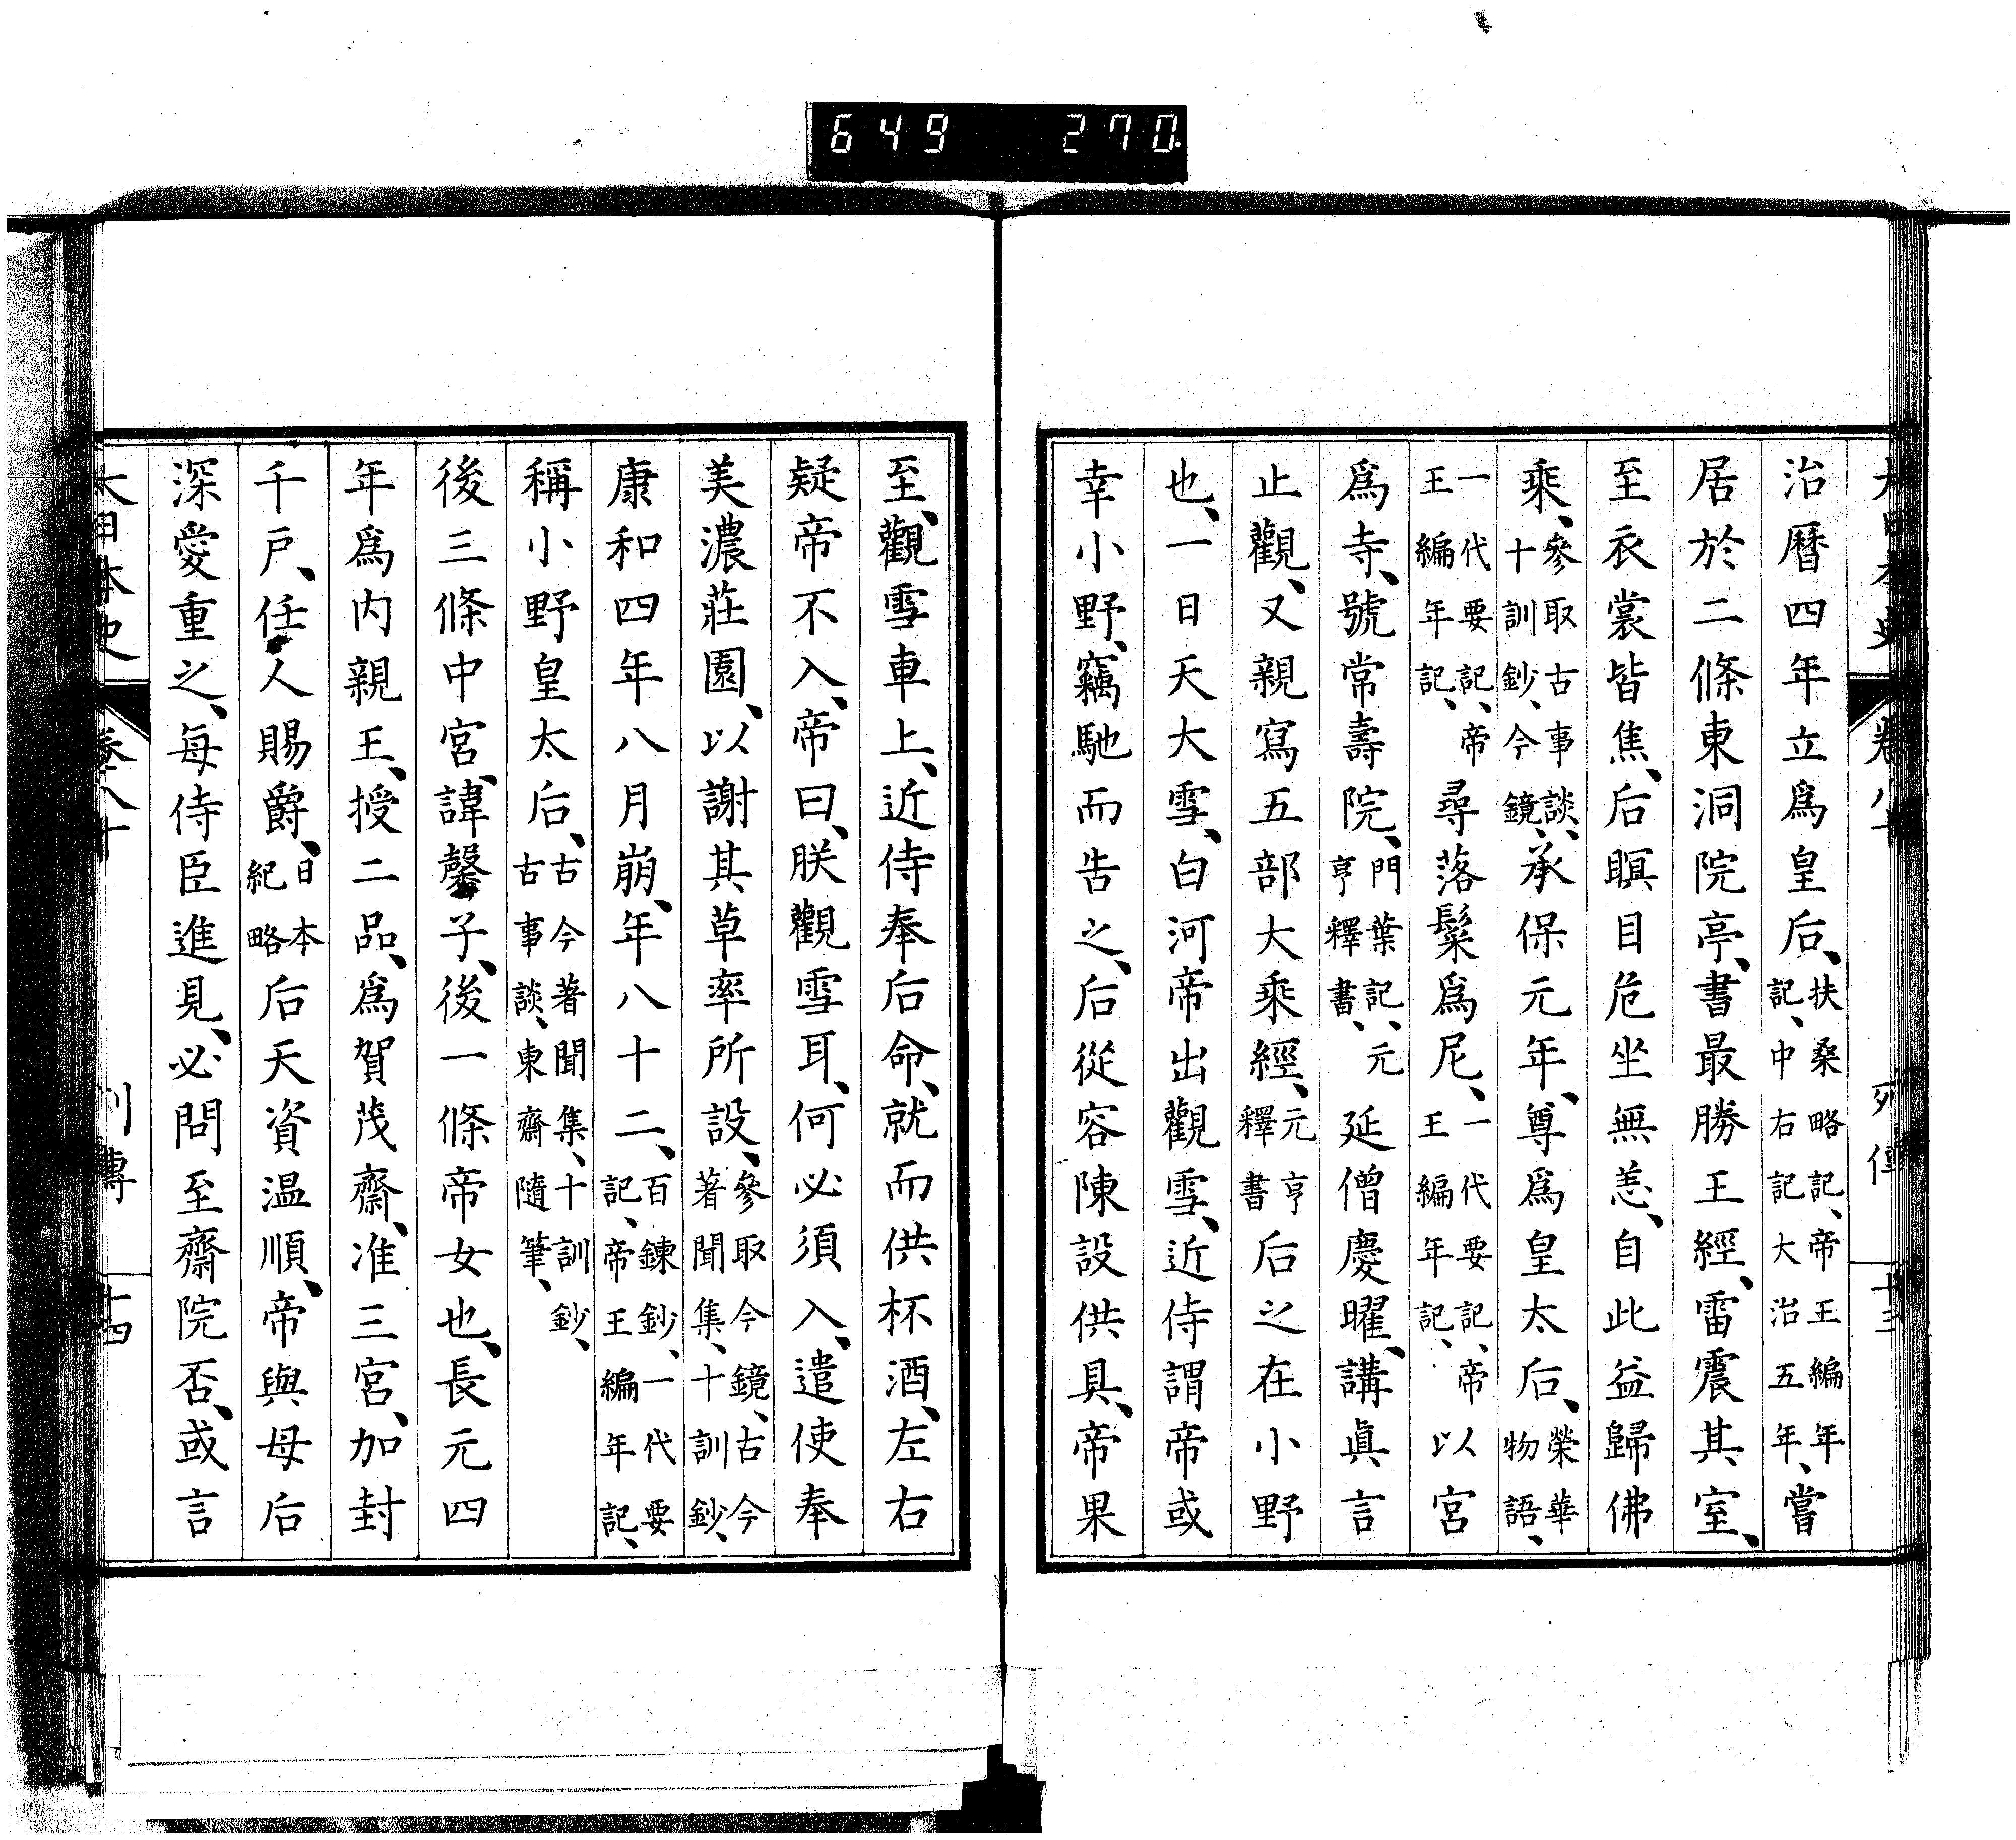 649 270
大日本史 卷八十 列傳 十三
治曆四年立爲皇后、扶桑略記、帝王編年記、中右記大治五年、嘗
居於二條東洞院亭、書最勝王經、雷震其室、
至衣裳皆焦、后瞑目危坐無恙、自此益歸佛
乘、參取古事談、十訓鈔、今鏡、承保元年、尊爲皇太后、榮華物語、
一代要記、帝王編年記、尋落髮爲尼、一代要記、帝王編年記、以宮
爲寺、號常壽院、門葉記、元亨釋書、延僧慶曜、講眞言
止觀、又親寫五部大乘經、元亨釋書后之在小野
也、一日天大雪、白河帝出觀雪、近侍謂帝或
幸小野、竊馳而告之、后從容陳設供具、帝果
至、觀雪車上、近侍奉后命、就而供杯酒、左右
疑帝不入、帝曰、朕觀雪耳、何必須入、遣使奉
美濃莊園、以謝其草率所設、參取今鏡、古今著聞集、十訓鈔、
康和四年八月崩、年八十二、百鍊鈔、一代要記、帝王編年記、
稱小野皇太后、古今著聞集、十訓鈔、古事談、東齋隨筆、
後三條中宮、諱馨子、後一條帝女也、長元四
年爲內親王、授二品、爲賀茂齋、准三宮、加封
千戶、任人賜爵、日本紀略后天資温順、帝與母后
深愛重之、每侍臣進見、必問至齋院否、或言
大日本史 卷八十 列傳 十四